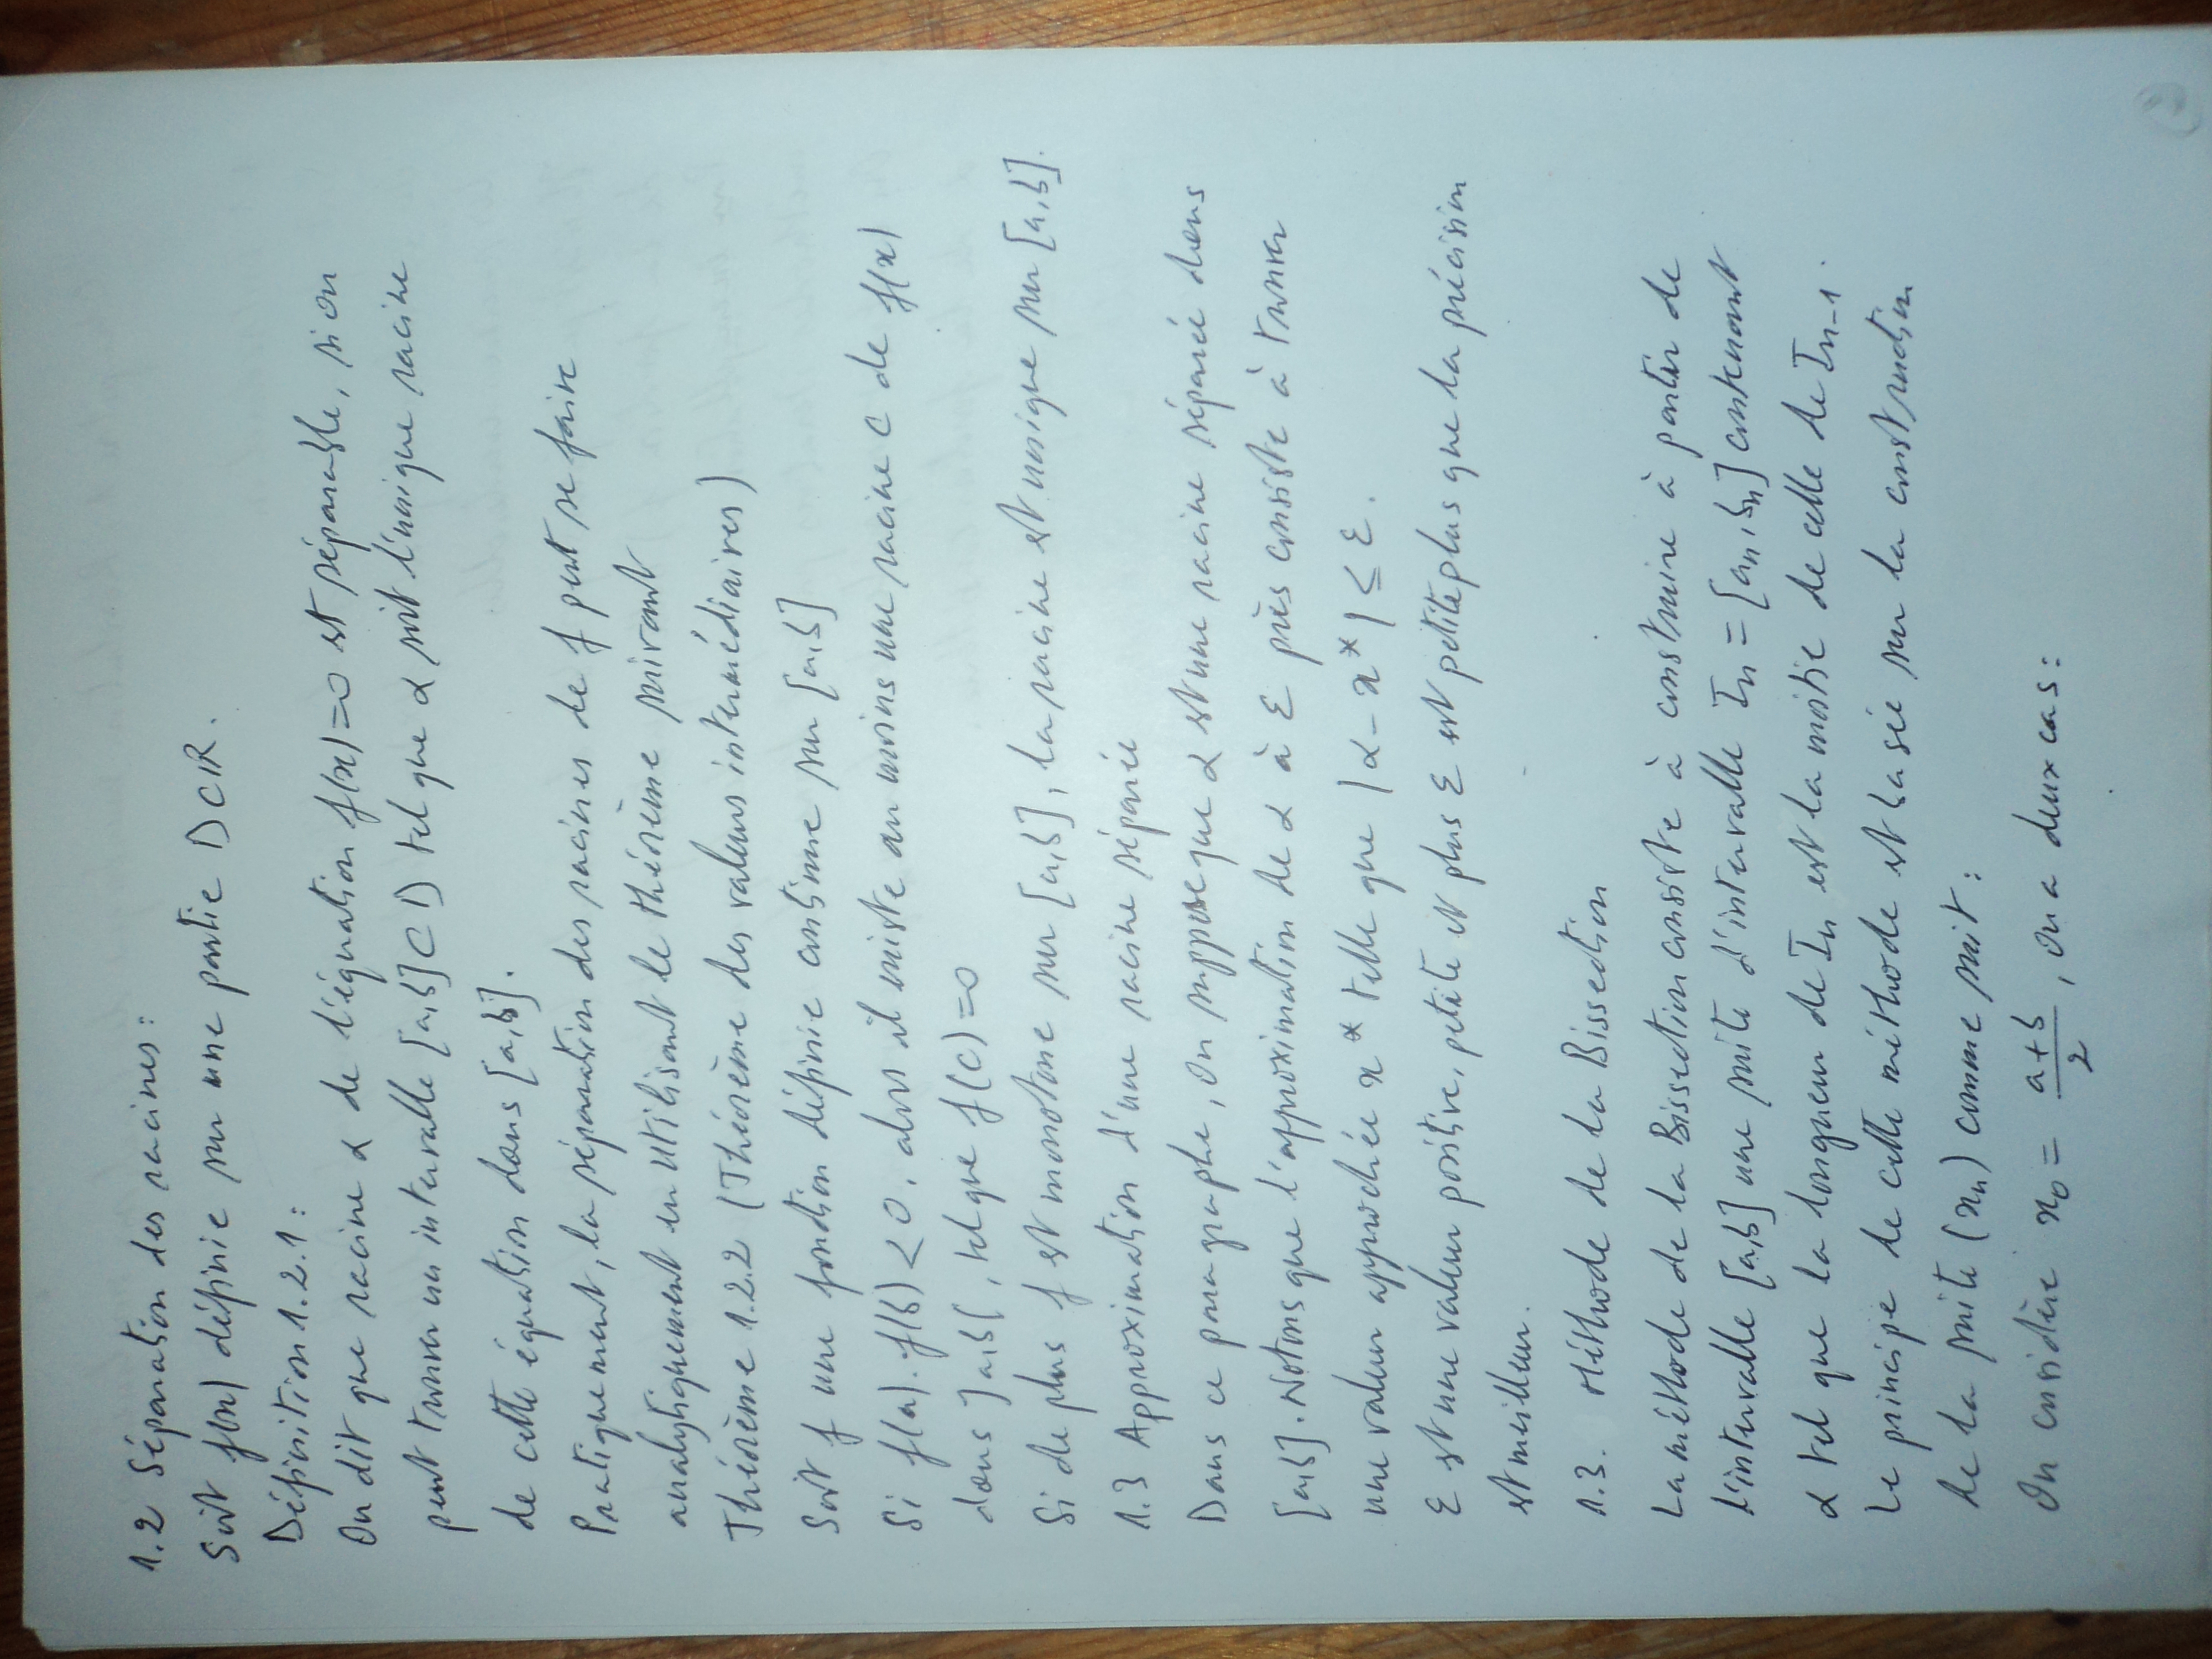 1.2 Séparation des racines :
Soit f(x) définie sur une partie D⊂IR.
Définition 1.2.1 :
On dit que racine α de l'équation f(x)=0 est séparable, si on
peut trouver un intervalle [a,b]⊂D tel que α soit l'unique racine
de cette équation dans [a,b].
Pratiquement, la séparation des racines de f peut se faire
analytiquement en utilisant le théorème suivant
Théorème 1.2.2 (Théorème des valeurs intermédiaires)
Soit f une fonction définie continue sur [a,b]
Si f(a).f(b) < 0, alors il existe au moins une racine c de f(x)
dans ]a,b[, tel que f(c)=0
Si de plus f est monotone sur [a,b], la racine est unique sur [a,b].
1.3 Approximation d'une racine séparée
Dans ce paragraphe, on suppose que α est une racine séparée dans
[a,b]. Notons que l'approximation de α à ε près consiste à trouver
une valeur approchée x* telle que |α - x*| ≤ ε.
ε est une valeur positive, petite et plus ε est petite plus que la précision
est meilleur.
1.3. Méthode de la Bissection
La méthode de la Bissection consiste à construire à partir de
l'intervalle [a,b] une suite d'intervalle In = [an, bn] contenant
α tel que la longueur de In est la moitie de celle de celle de In-1.
Le principe de cette méthode est basée sur la construction
de la suite (xn) comme suit :
On considère x0 = a+b/2, on a deux cas :